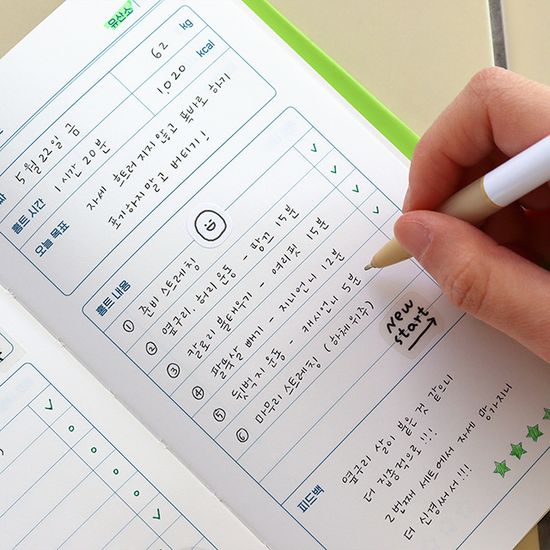 유산소
62 kg
1,020 kcal
5월 22일 금
홈트 시간 1시간 20분
오늘 목표 자세 흐트러지지 않고 똑바로 하기
포기하지말고 버티기!
홈트 내용
① 준비 스트레칭
② 옆구리, 허리 운동 - 땅끄 15분
③ 칼로리 불태우기 - 여리핏 15분
④ 팔뚝살 빼기 - 지니언니 12분
⑤ 뒷벅지 운동 - 캐시언니 5분
⑥ 마무리 스트레칭 (하체위주)
New
start
피드백
옆구리 살이 붙은 것 같으니
더 집중적으로!!!
2번째 세트에서 자세 망가지니
더 신경써서!!!